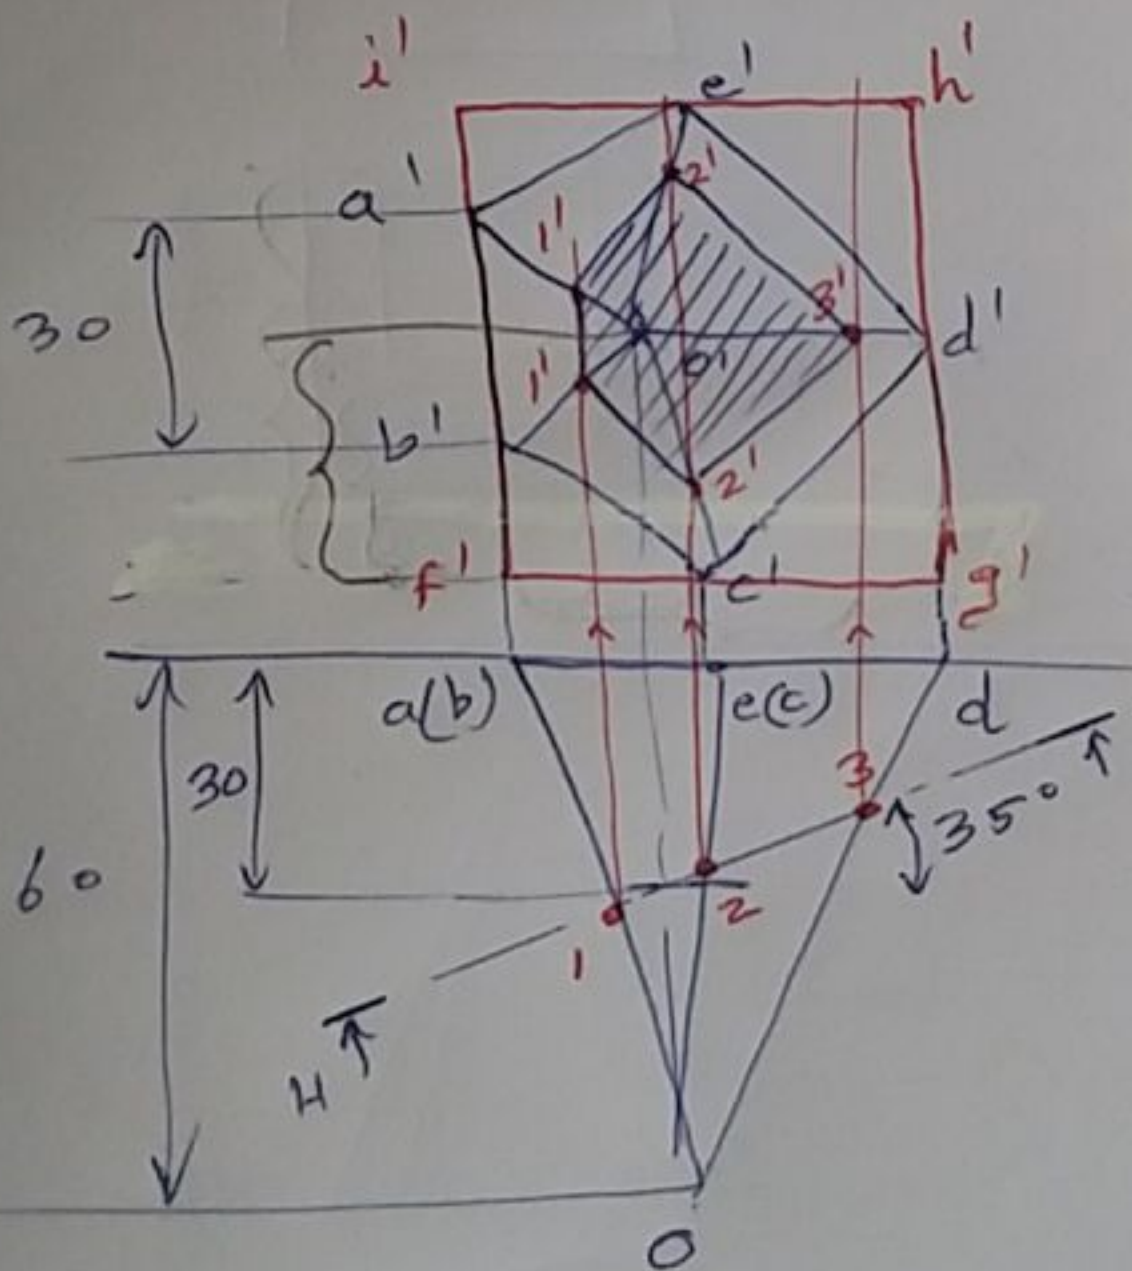 i'
e'
h'
a'
2'
1'
30
3'
d'
o'
1'
b'
2'
f'
c'
g'
a(b)
e(c)
d
30
3
35°
60
2
1
H
O